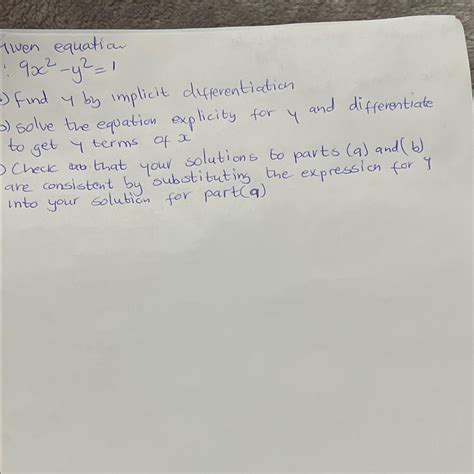 Given equation
: 9x² - y² = 1
a) Find y by implicit differentiation
b) solve the equation explicity for y and differentiate
to get y terms of x
) Check that your solutions to parts (a) and (b)
are consistent by substituting the expression for y
into your solution for part (a)